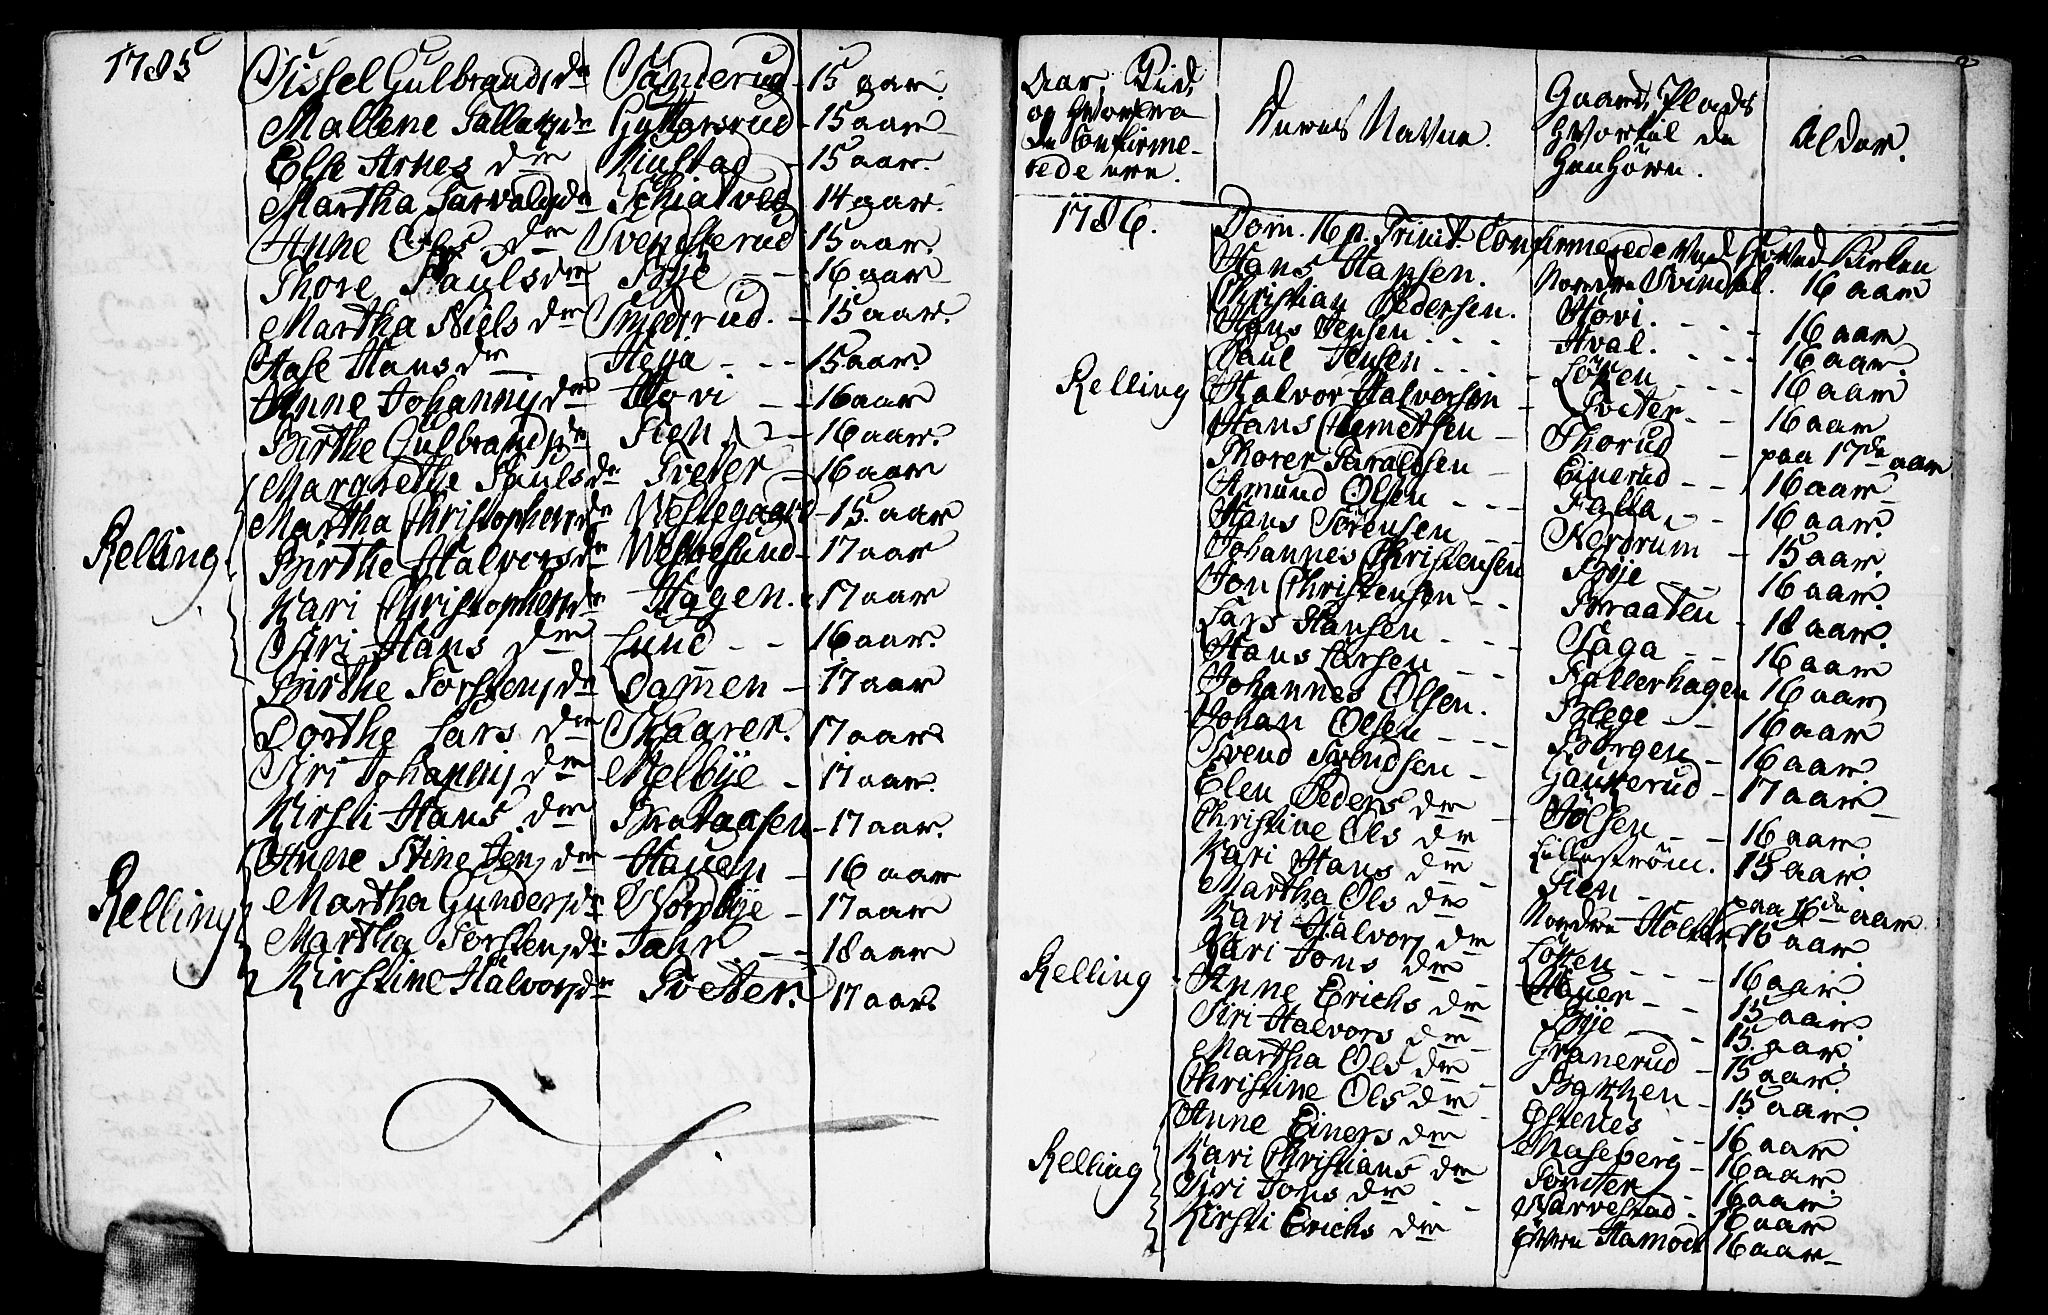 1785
Sissel Gulbrands dr Sanderud - 15 aar.
Mallene dr Guttersrud - 15 aar
Else Arnes dr - 15 aar.
Martha Tarvalds dr 14 aar.
Anne Ols dr Svendserud 15 aar.
Thore Pauls dr Bøje - - 16 aar
Martha Niels dr Smedsrud. - 15 aar.
Aase Hans dr Heja - - - 15 aar.
Anne Johannis dr Hovi - - 16 aar
Birthe Gulbrands dr Tien - 16 aar.
Margrethe Pauls dr Tveter - 16 aar
Martha Christophers dr Westegaard - 15. aar
Relling
Birthe Halvors dr - 17 aar
Kari Christophers dr Hagen. 17 aar
Siri Hans dr Lund - - 16 aar.
Birthe Torstens dr Dammen - 17 aar
Dorthe Lars dr Skaarer. 17 aar
Siri Johannis dr Melbye - 17 aar.
Kirsti Hans dr Braraasen - 17 aar.
Anne Stine Jens dr Hauen - 16 aar
Martha Gunders dr Nordbye - 17 aar
Relling
Martha Torstens dr Fahr. - - 18 aar
Kirstine Halvors dr Tveter. 17 aar
Aar, Tid,
og hvorlra
de Confirme-
rede ere.
Deres Navne.
Gaard, Plads
hvortil de
henhøre.
Alder.
1786. Dom. 16 p. Trinit. Confirmerede ved Hoved Kirken
Hans Hansen. Nordre Svindal. 16 aar
Christian Pedersen. Hovi. - - - 16 aar
Hans Jensen - - - Hval. - - - 16 aar.
Paul Jensen - - - Løken - - - 16 aar
Relling Halvor Halvorsen - Tveter - - 16 aar
Hans Clemetsen - Thorud - paa 17de aar
Thorer Taraldsen - Einerud - - 16 aar
Amund Olsen - - - Falla - - 16 aar.
Hans Sørensen - - Nerdrum - 15 aar.
Johannes Christensen Bøje - - 16 aar.
Jon Christensen - - Braaten - 18 aar.
Lars Hansen - - - Saga - - 16 aar
Hans Larsen - - - Ballerhagen 16 aar
Johannes Olsen. - - 16 aar
Johan Olsen - - - Børgen - 16 aar.
Svend Svendsen - Gaukerud - 17 aar
Elen Peders dr Holsen - - 16 aar.
Christine Ols dr Lillestrøm. 15 aar.
Kari Hans dr - Tien - paa 16de aar
Martha Ols dr Nordre Holter 15 aar.
Kari Halvors dr Løken - - - 16 aar.
Kari Jons dr - Hauer - - 15 aar.
Relling
Anne Erichs dr Bøje - - 15. aar.
Siri Halvors dr - Granerud - 15 aar.
Martha Ols dr - 15 aar.
Christine Ols dr - Østenes - - 16 aar
Anne Einers dr Maseberg - 16 aar.
Relling
Kari Christians dr Tomter - 16 aar
Siri Jons dr - - Narvestad - 16 aar
Kirsti Erichs dr 16 aar